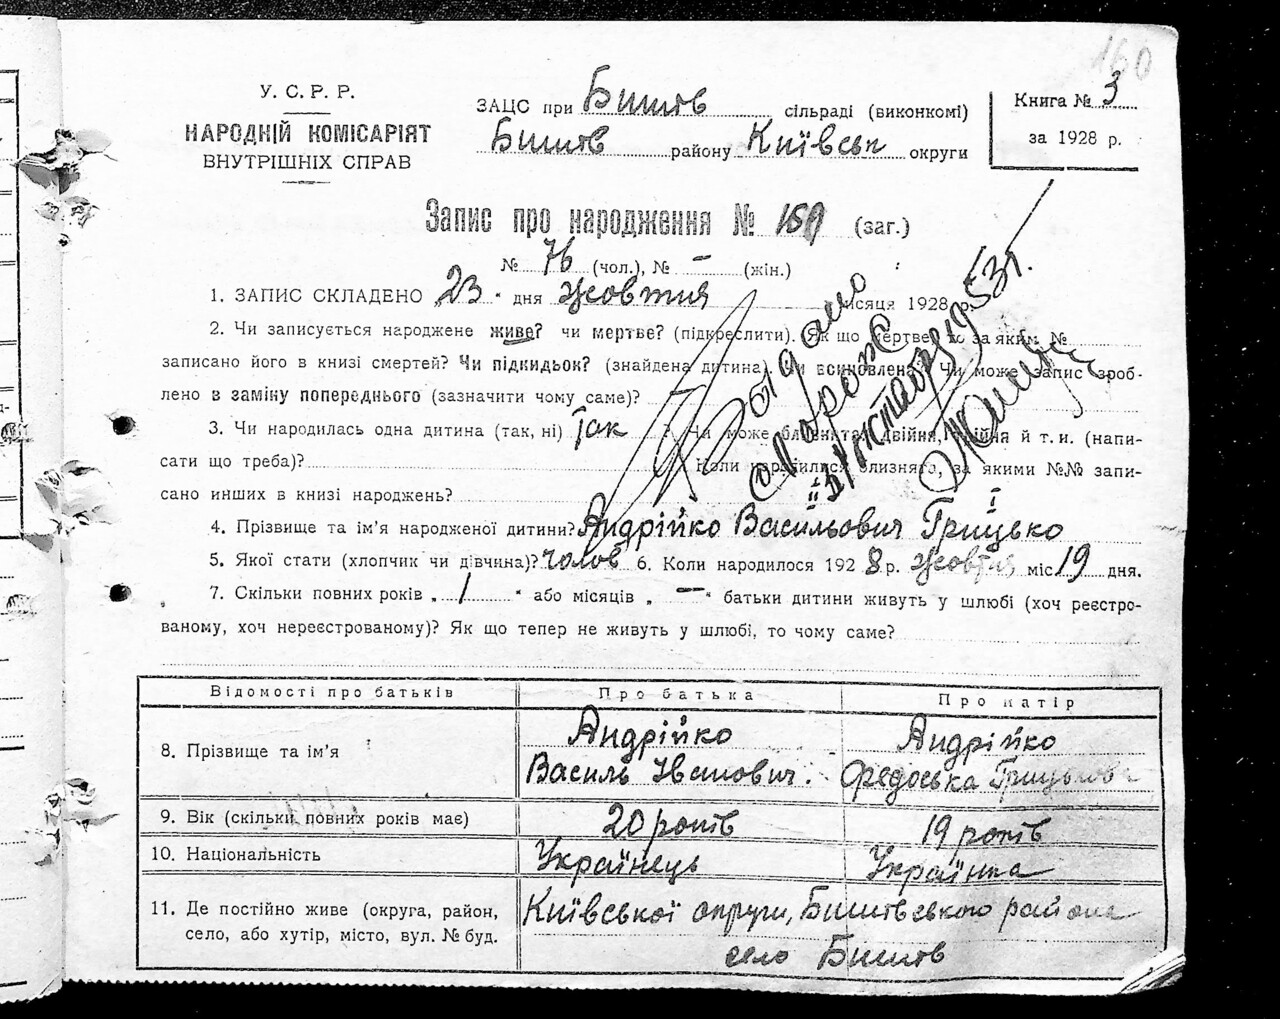 160
У. С. Р. Р.
НАРОДНІЙ КОМІСАРІЯТ
ВНУТРІШНІХ СПРАВ
ЗАЦС при Бишів сільраді (виконкомі)
Бишів району Київськ округи
Книга № 3
за 1928 р.
Запис про народження № 159 (заг.)
№ 76 (чол.), № – (жін.)
1. ЗАПИС СКЛАДЕНО 23 " дня жовтня місяця 1928 р.
2. Чи записується народжене живе? чи мертве? (підкреслити). Як що мертве, то за яким №
записано його в книзі смертей? Чи підкидьок? (знайдена дитина). Чи всиновлена? Чи може запис зроб-
лено в заміну попереднього (зазначити чому саме)?
3. Чи народилась одна дитина (так, ні) Так ? Чи може близнята, двійня, трійня й т. и. (напи-
сати що треба)? Коли народилися близнята, за якими №№ запи-
сано инших в книзі народжень?
4. Прізвище та ім'я народженої дитини? Андрійко Васильович Грицько
5. Якої стати (хлопчик чи дівчина)? чолов 6. Коли народилося 1928 р. жовтня міс. 19 дня.
7. Скільки повних років „ 1 " або місяців „ – " батьки дитини живуть у шлюбі (хоч реєстро-
ваному, хоч нереєстрованому)? Як що тепер не живуть у шлюбі, то чому саме?
Відомості про батьків Про батька Про матір
8. Прізвище та ім'я Андрійко Василь Іванович. Андрійко Федоська
9. Вік (скільки повних років має) 20 років 19 років
10. Національність Українець Українка
11. Де постійно живе (округа, район,
село, або хутір, місто, вул. № буд.
Київської округи, Бишівського району
село Бишів